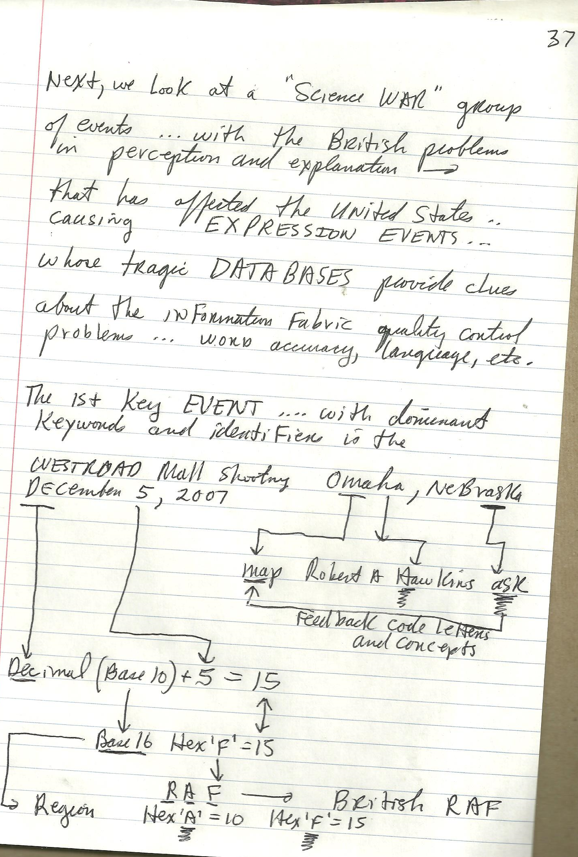 37
Next, we look at a "Science WAR" group
of events ... with the British problems
in perception and explanation →
that has affected the United States ..
causing EXPRESSION EVENTS ...
whose tragic DATABASES provide clues
about the INFormation Fabric quality control
problems ... word accuracy, language, etc.
The 1st Key EVENT .... with dominant
Keywords and identifiers is the
WESTROAD Mall Shooting Omaha, NeBraska
DECember 5, 2007
map Robert A Hawkins ask
Feedback code Letters
and concepts
Decimal (Base 10) + 5 = 15
Base 16 Hex 'F' = 15
RAF → British RAF
Region Hex 'A' = 10 Hex 'F' = 15